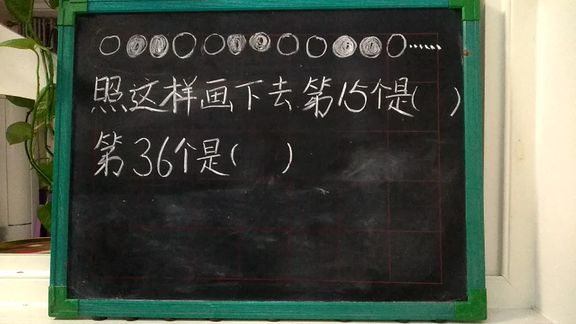 ○●●○○●●○○●●○……
照这样画下去.第15个是( )
第36个是( )